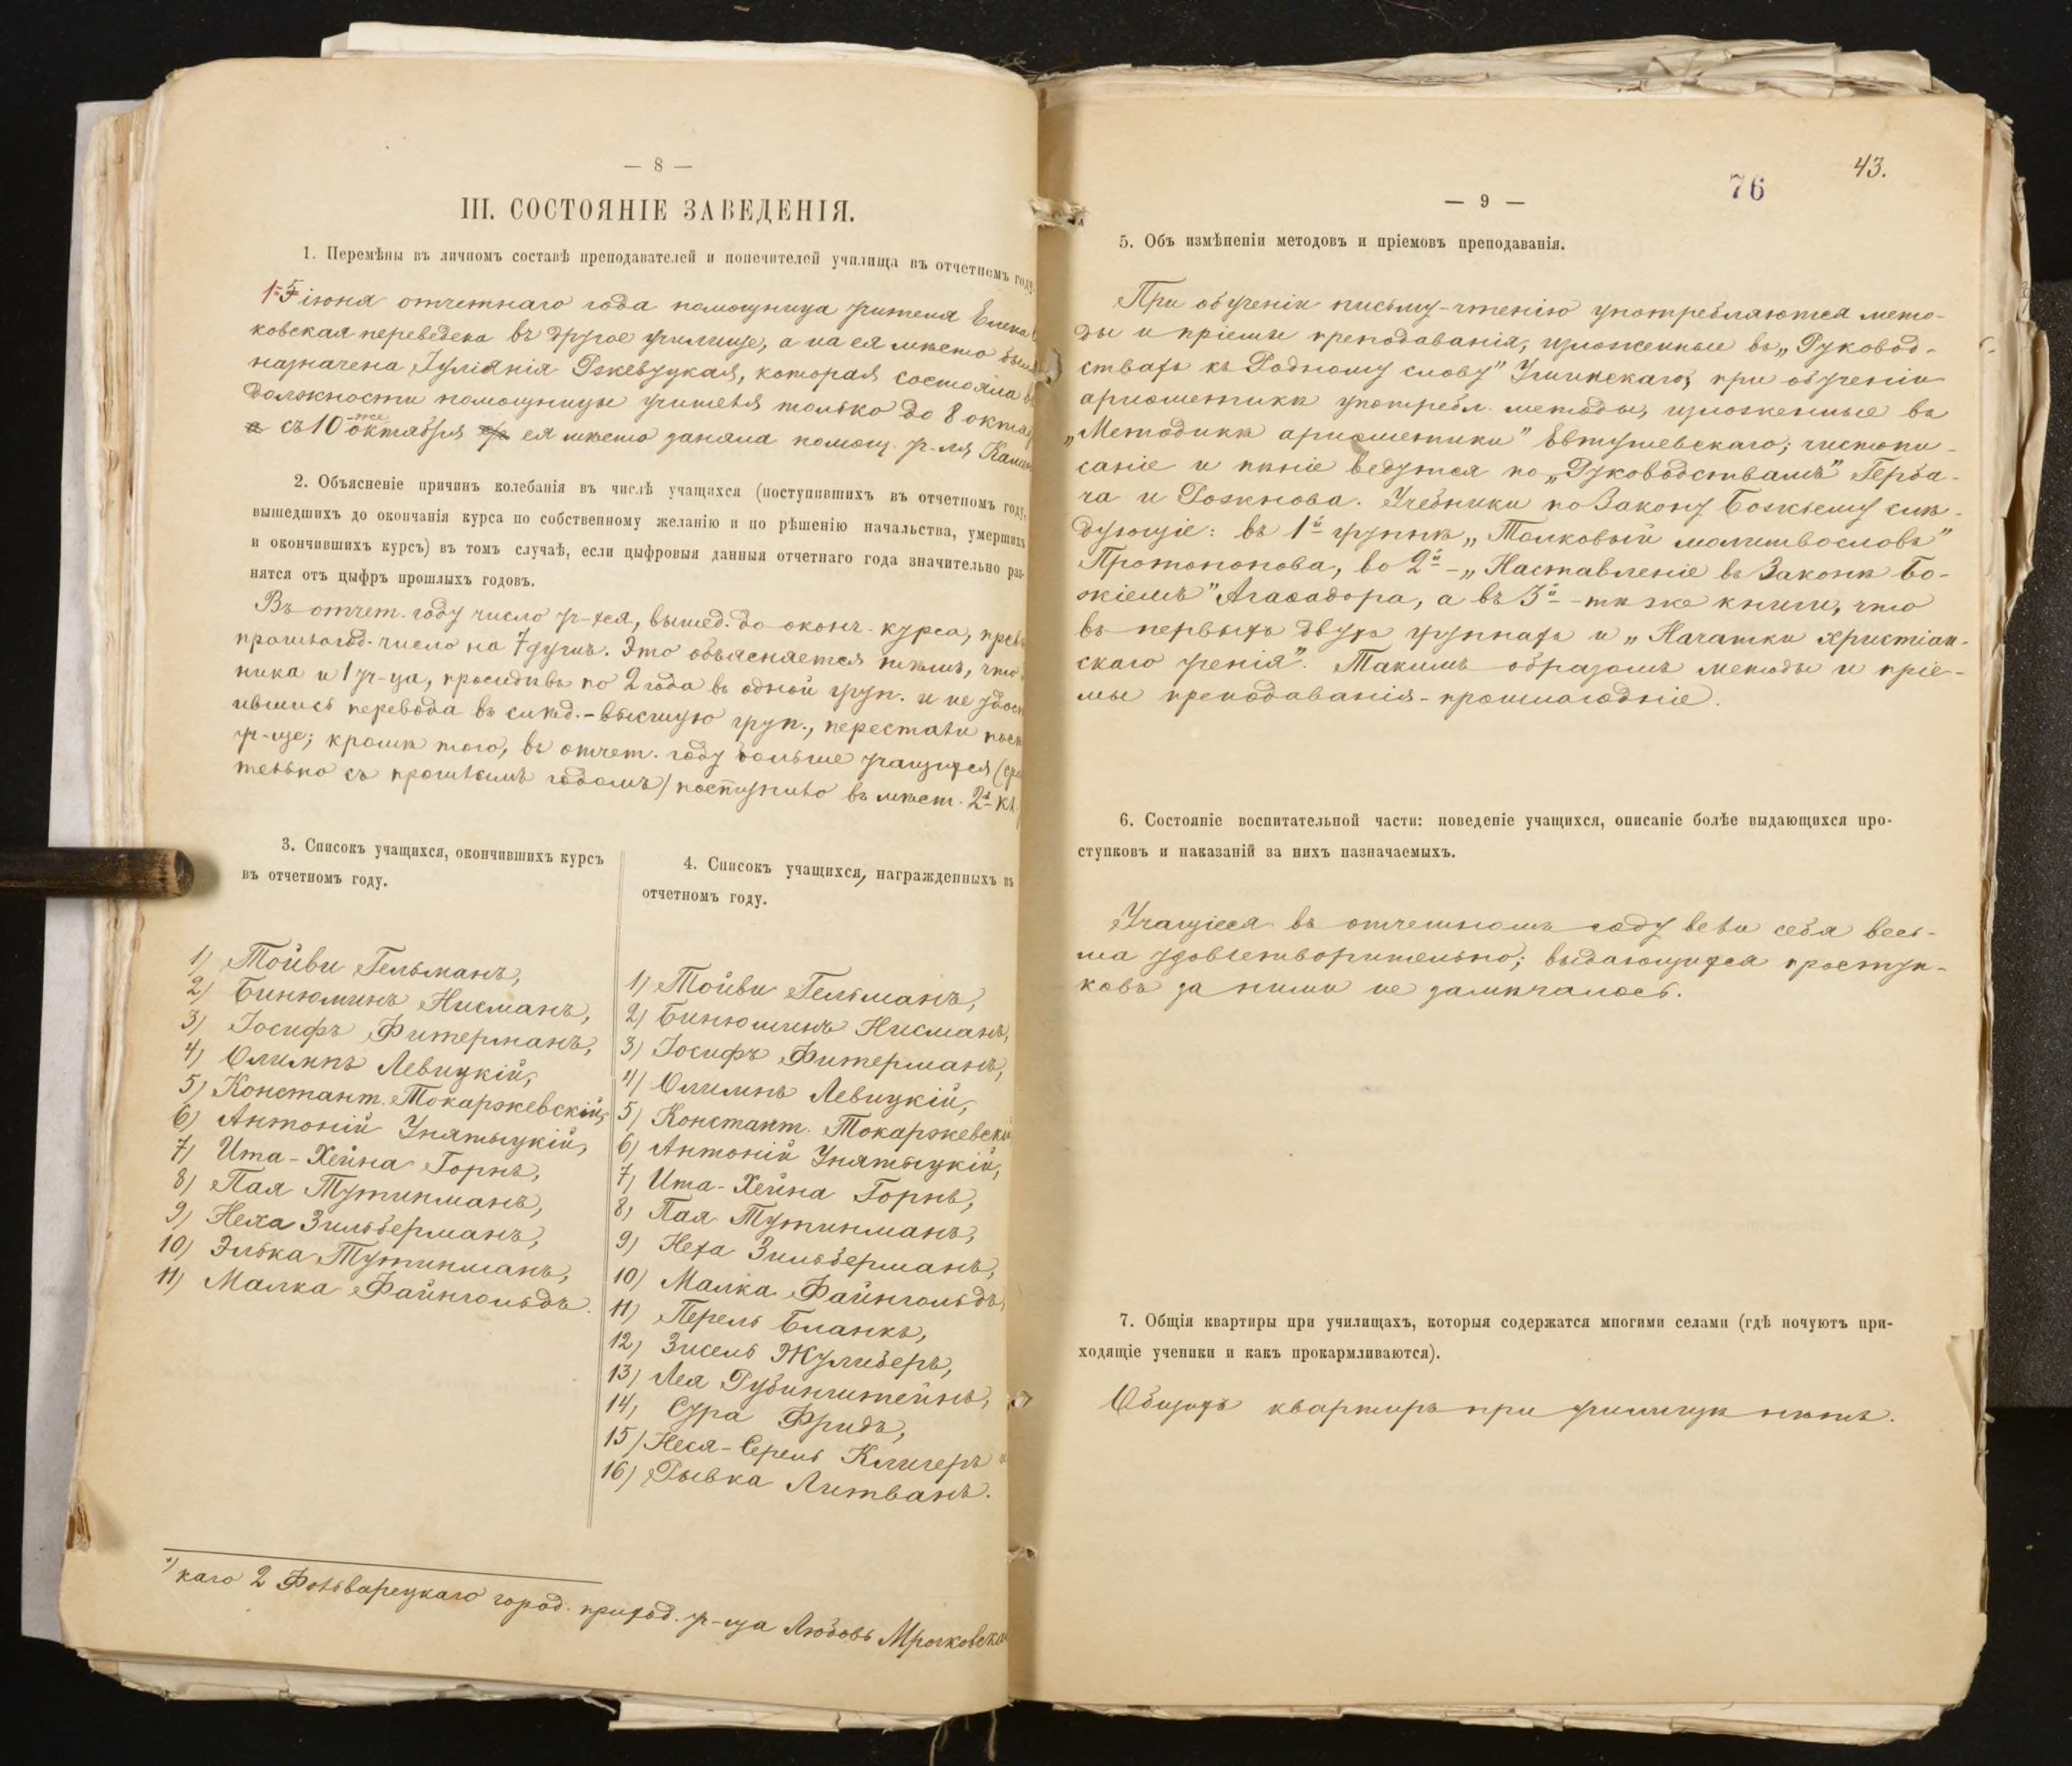 — 8 —
III. СОСТОЯНІЕ ЗАВЕДЕНІЯ.
1. Перемѣны въ личномъ составѣ преподавателей и попечителей училища въ отчетномъ году.
іюня отчетнаго года помощница учителя Елена
ковская переведена въ другое училище, а на ея мѣсто была
назначена Іуліанія Ржевуцкая, которая состояла въ
должности помощницы учителя только до 8 октяб
а съ 10 октября же ея мѣсто заняла помощ. уч-ля
2. Объясненіе причинъ колебанія въ числѣ учащихся (поступившихъ въ отчетномъ году,
вышедшихъ до окончанія курса по собственному желанію и по рѣшенію начальства, умершихъ
и окончившихъ курсъ) въ томъ случаѣ, если цыфровыя данныя отчетнаго года значительно раз-
нятся отъ цыфръ прошлыхъ годовъ.
Въ отчет. году число уч-хся, вышед. до оконч. курса, прев
прошлогод. число на 7 душъ. Это объясняется тѣмъ, что
ника и 1 уч-ца, просидѣвъ по 2 года въ одной груп. и не удост
ившись перевода въ слѣд. – высшую груп., перестали посѣ
уч-ще; кромѣ того, въ отчет. году больше учащихся (сра
тельно съ прошлымъ годомъ) поступило въ мѣст. 2-х кл.
3. Списокъ учащихся, окончившихъ курсъ
въ отчетномъ году.
1) Тойви Гельманъ,
2) Бинюминъ Нисманъ,
3) Іосифъ Фитерманъ,
4) Олимпъ Левицкій,
5) Констант. Токаржевскій,
6) Антоній Унятыцкій,
7) Ита-Хейна Горнъ,
8) Пая Тутинманъ,
9) Неха Зильберманъ,
10) Элька Тутинманъ,
11) Малка Файнгольдъ.
4. Списокъ учащихся, награжденныхъ въ
отчетномъ году.
1) Тойви Гельманъ,
2) Бинюминъ Нисманъ,
3) Іосифъ Фитерманъ,
4) Олимпъ Левицкій,
5) Констант. Токаржевскій
6) Антоній Унятыцкій,
7) Ита-Хейна Горнъ,
8) Пая Тутинманъ,
9) Неха Зильберманъ,
10) Малка Файнгольдъ,
11) Перель Бланкъ,
12) Зисель Жулиберъ,
13) Лея Рубинштейнъ,
14) Сура Фридъ,
15) Неся-Серель Клигеръ и
16) Рывка Литванъ.
*) каго 2 Фольварецкаго город. приход. уч-ща Любовь Мрочковская
43.
76
— 9 —
5. Объ измѣненіи методовъ и пріемовъ преподаванія.
При обученіи письму-чтенію употребляются мето-
ды и пріемы преподаванія, изложенные въ „Руковод-
ствахъ къ Родному слову" Ушинскаго; при обученіи
ариѳметикѣ употребл. методы, изложенные въ
„Методикѣ ариѳметики" Евтушевскаго; чистопи-
саніе и пѣніе ведутся по „Руководствамъ" Герба-
ча и Рожнова. Учебники по Закону Божьему слѣ-
дующіе: въ 1й группѣ „Толковый молитвословъ"
Протопопова, во 2й – „Наставленіе въ Законѣ Бо-
жіемъ" Агаѳодора, а въ 3й – тѣ же книги, что
въ первыхъ двухъ группахъ и „Начатки христіан-
скаго ученія". Такимъ образомъ методы и пріе-
мы преподаванія – прошлогодніе.
6. Состояніе воспитательной части: поведеніе учащихся, описаніе болѣе выдающихся про-
ступковъ и наказаній за нихъ назначаемыхъ.
Учащіеся въ отчетномъ году вели себя весь-
ма удовлетворительно; выдающихся проступ-
ковъ за ними не замѣчалось.
7. Общія квартиры при училищахъ, которыя содержатся многими селами (гдѣ ночуютъ при-
ходящіе ученики и какъ прокармливаются).
Общихъ квартиръ при училищѣ нѣтъ.